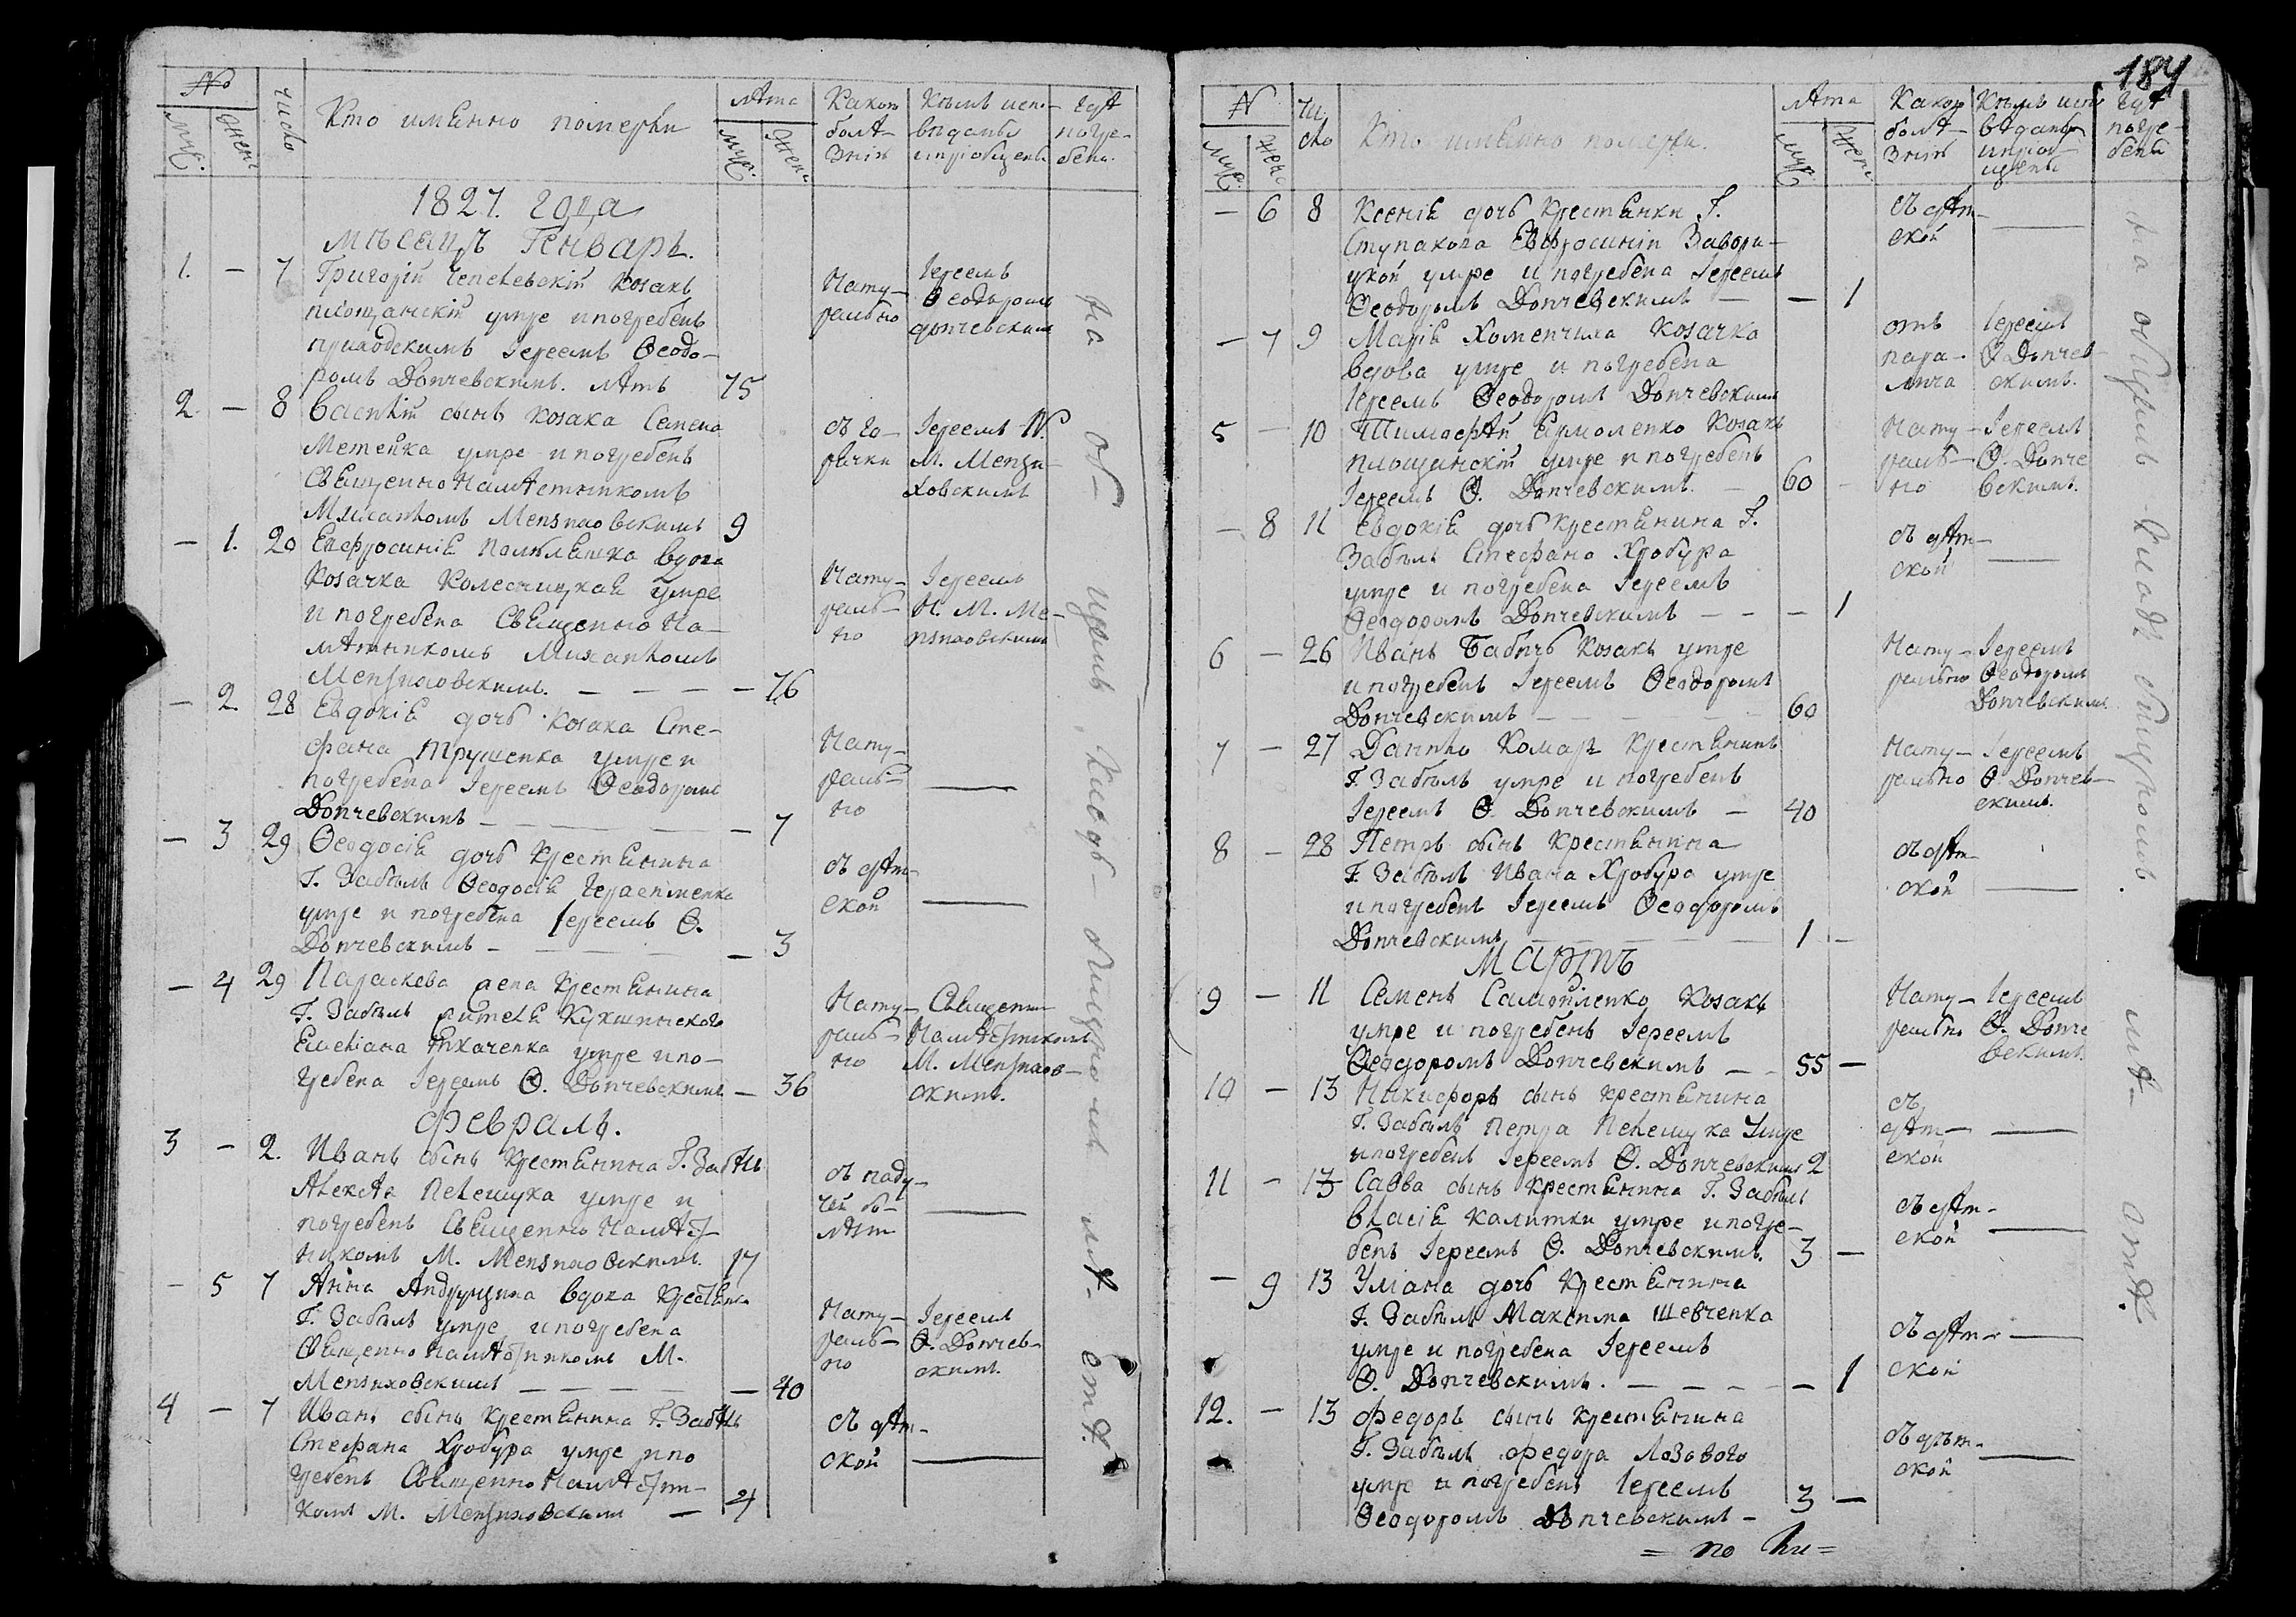 184
№
муж.
жен.
число
Кто имянно померли
лѣта
муж.
жен.
Какою
болѣ-
знію
Кѣмъ испо-
вѣданы
и пріобщены
гдѣ
погре-
бены.
1827. года
мѣсяцъ Генварь.
1. — 7 Григорій козакъ
площанскій умре и погребенъ
приходскимъ Іереемъ Ѳеодо-
ромъ Допчевскимъ. лѣтъ 75
Нату-
рально
Іереемъ
Ѳеодоромъ
Допчевскимъ
2. — 8 Василій сынъ козака Семена
Метейка умре и погребенъ
Священно Намѣстникомъ
Михаиломъ Мензиховскимъ 9
съ го-
рячки
Іереемъ N.
М. Мензи-
ховскимъ
— 1. 20 Евфросинія вдова
козачка Колесницкая умре
и погребена Священно На-
мѣстникомъ Михаиломъ
Мензиховскимъ. — — — — 76
Нату-
раль-
но
Іереемъ
Н. М. Ме-
нзиховскимъ
— 2 28 Евдокія дочь козака Сте-
фана Трущенка умре и
погребена Іереемъ Ѳеодоромъ
Допчевскимъ — — — — 7
Нату-
раль-
но
—
— 3 29 Ѳеодосія дочь крестянина
Г. Забѣлъ Ѳеодосія Герасименка
умре и погребена Іереемъ Ѳ.
Допчевскимъ — — — 3
съ дѣт-
ской
—
— 4 29 Параскева жена крестянина
Г. Забѣлъ жителя Кукшинского
Емеліана Ткаченка умре и по-
гребена Іереемъ Ѳ. Допчевскимъ — 36
Нату-
раль-
но
Священно
Намѣстникомъ
М. Мензихов-
скимъ.
Февраль.
3 — 2. Иванъ сынъ крестянина Г. Забѣлъ
Алексѣя Пелешука умре и
погребенъ Священно Намѣст-
никомъ М. Мензиховскимъ. 17
съ паду-
чей бо-
лѣзни
—
— 5 7 Анна Андрущиха вдова крестянка
Г. Забѣлъ умре и погребена
Священно Намѣстникомъ М.
Мензиховскимъ — — — — 40
Нату-
раль-
но
Іереемъ
Ѳ. Допчев-
скимъ.
4 — 7 Иванъ сынъ крестянина Г. Забѣлъ
Стефана Хробура умре и по
гребенъ Священно Намѣстни-
комъ М. Мензиховскимъ — 4
съ дѣт-
ской
—
На об-
щемъ
кладби-
щѣ
N
муж.
жен.
чи
сло
Кто имянно померли.
лѣта
муж.
жен.
Какою
болѣ-
знію
Кѣмъ испо
вѣданы
и пріоб-
щены
гдѣ
погре-
бены
— 6 8 Ксенія дочь крестянки Г.
Ступакова Евфросиніи
умре и погребена Іереемъ
Ѳеодоромъ Допчевскимъ — — 1
съ дѣт-
ской
—
— 7 9 Марія Хоменчиха козачка
вдова умре и погребена
Іереемъ Ѳеодоромъ Допчевскимъ
отъ
пара-
лича
Іереемъ
Ѳ. Допчев-
скимъ.
5 — 10 Тимоѳѣй Ермоленко козакъ
площанскій умре и погребенъ
Іереемъ Ѳ. Допчевскимъ. — 60 -
Нату-
раль-
но
Іереемъ
Ѳ. Допче
вскимъ.
— 8 11 Евдокія дочь крестянина Г.
Забѣлъ Стефана Хробура
умре и погребена Іереемъ
Ѳеодоромъ Допчевскимъ — — — 1
съ дѣт-
ской
—
6 — 26 Иванъ Бабичъ козакъ умре
и погребенъ Іереемъ Ѳеодоромъ
Допчевскимъ — — — — 60
Нату-
рально
Іереемъ
Ѳеодоромъ
Допчевскимъ
7 — 27 Данило Комаръ крестянинъ
Г. Забѣлъ умре и погребенъ
Іереемъ Ѳ. Допчевскимъ — 40
Нату-
рально
Іереемъ
Ѳ. Допчев-
скимъ.
8 — 28 Петръ сынъ крестянина
Г. Забѣлъ Ивана Хробура умре
и погребенъ Іереемъ Ѳеодоромъ
Допчевскимъ — — — — 1 —
съ дѣт-
ской
—
Мартъ
9 — 11 Семенъ Самойленко козакъ
умре и погребенъ Іереемъ
Ѳеодоромъ Допчевскимъ — — 55 —
Нату-
рально
Іереемъ
Ѳ. Допче
вскимъ.
10 — 13 Никифоръ сынъ крестянина
Г. Забѣлъ Петра Пелешука умре
и погребенъ Іереемъ Ѳ. Допчевскимъ 2
съ
дѣт-
ской
—
11 — 13 Савва сынъ крестянина Г. Забѣлъ
Власія Калитки умре и погре-
бенъ Іереемъ Ѳ. Допчевскимъ. 3 —
съ дѣт-
ской
—
— 9 13 Уліана дочь крестянина
Г. Забѣлъ Максима Шевченка
умре и погребена Іереемъ
Ѳ. Допчевскимъ. — — — — 1
съ дѣт-
ской
—
12. — 13 Федоръ сынъ крестянина
Г. Забѣлъ Федора Лозового
умре и погребенъ Іереемъ
Ѳеодоромъ Допчевскимъ — 3 —
съ дѣт-
ской
—
= по